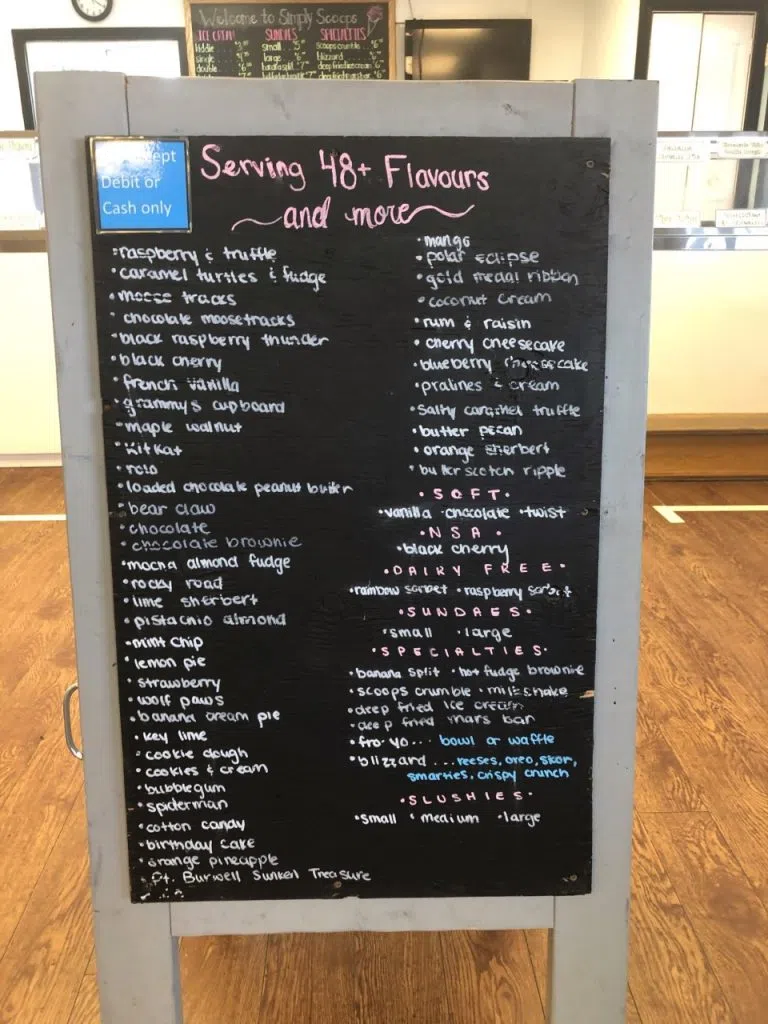 Welcome to Simply Scoops
ICE CREAM
kiddie
single
double
SUNDAES
small
large
SPECIALTIES
scoops crumble
blizzard
deep fried ice cream
deep fried mars bar
Debit or
Cash only
Serving 48+ Flavours
and more
• raspberry & truffle
• caramel turtles & fudge
• moose tracks
• chocolate moosetracks
• black raspberry thunder
• black cherry
• french vanilla
• grammy's cupboard
• maple walnut
• Kitkat
• rolo
• loaded chocolate peanut butter
• bear claw
• chocolate
• chocolate brownie
• mocha almond fudge
• rocky road
• lime sherbert
• pistachio almond
• mint chip
• lemon pie
• strawberry
• wolf paws
• banana cream pie
• key lime
• cookie dough
• cookies & cream
• bubblegum
• spiderman
• cotton candy
• birthday cake
• orange pineapple
• Pt. Burwell Sunken Treasure
• mango
• polar eclipse
• gold medal ribbon
• coconut cream
• rum & raisin
• cherry cheesecake
• blueberry cheesecake
• pralines & cream
• salty caramel truffle
• butter pecan
• orange sherbert
• butterscotch ripple
• SOFT •
• vanilla • chocolate • twist
• NSA •
• black cherry
• DAIRY FREE •
• rainbow sorbet • raspberry sorbet
• SUNDAES •
• small • large
• SPECIALTIES •
• banana split • hot fudge brownie
• scoops crumble • milkshake
• deep fried ice cream
• deep fried mars bar
• fro-yo... bowl or waffle
• blizzard ... reeses, oreo, skor,
smarties, crispy crunch
• SLUSHIES •
• small • medium • large